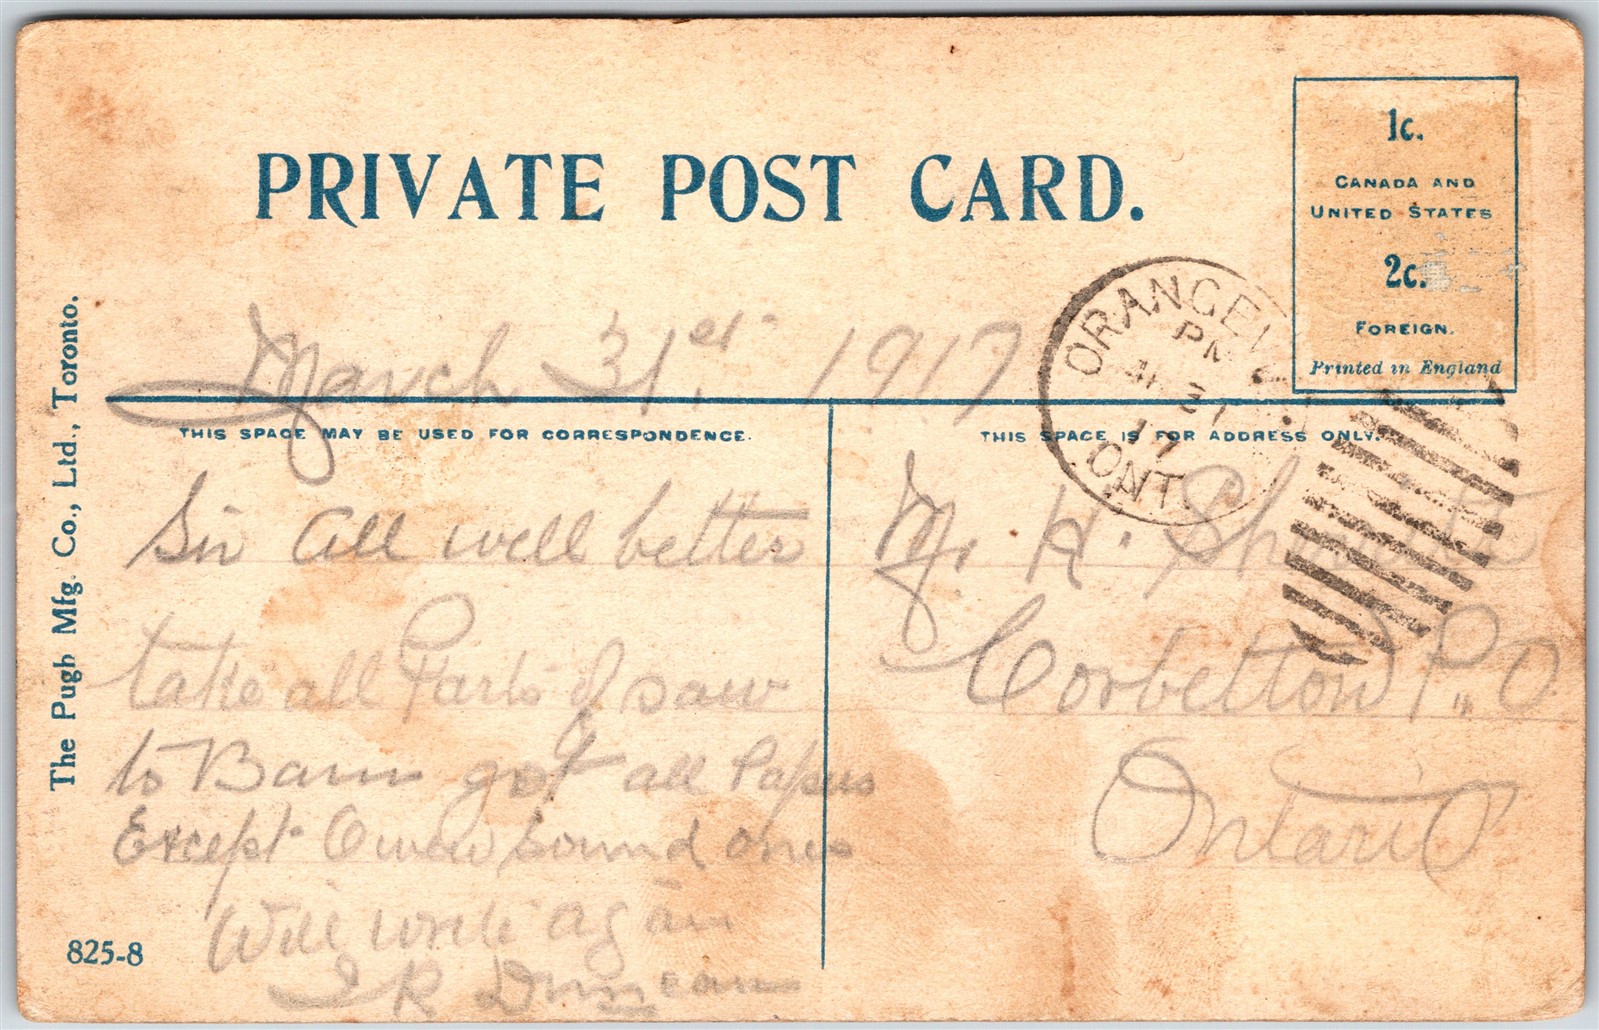 PRIVATE POST CARD.
1c.
CANADA AND
UNITED STATES
2c.
FOREIGN.
Printed in England
The Pugh Mfg. Co., Ltd., Toronto.
March 31st 1917
ORANGEV
PM
31
17
ONT
THIS SPACE MAY BE USED FOR CORRESPONDENCE.
Sir All well better
take all Parts of saw
to Barn got all Papers
Except Owen Sound ones
Will write again
J R Duncan
THIS SPACE IS FOR ADDRESS ONLY.
M. H.
Corbetton P.O
Ontario
825-8